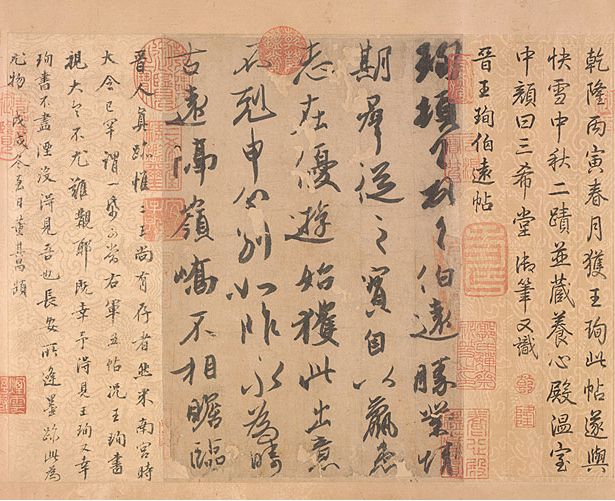 乾隆丙寅春月獲王珣此帖遂與
快雪中秋二蹟並藏養心殿溫室
中顏曰三希堂 御筆又識
晉王珣伯遠帖
珣頓首頓首伯遠勝業情
期羣從之寶自以羸患
志在優遊始獲此出意
不剋申分別如昨永為疇
古遠隔嶺嶠不相瞻臨
晉人真跡惟二王尚有存者然米南宮時
大令已罕謂一紙可當右軍五帖況王珣書
視大令不尤難覯耶既幸予得見王珣又幸
珣書不盡湮沒得見吾也長安所逢墨跡此為
尤物戊戌冬至日董其昌題